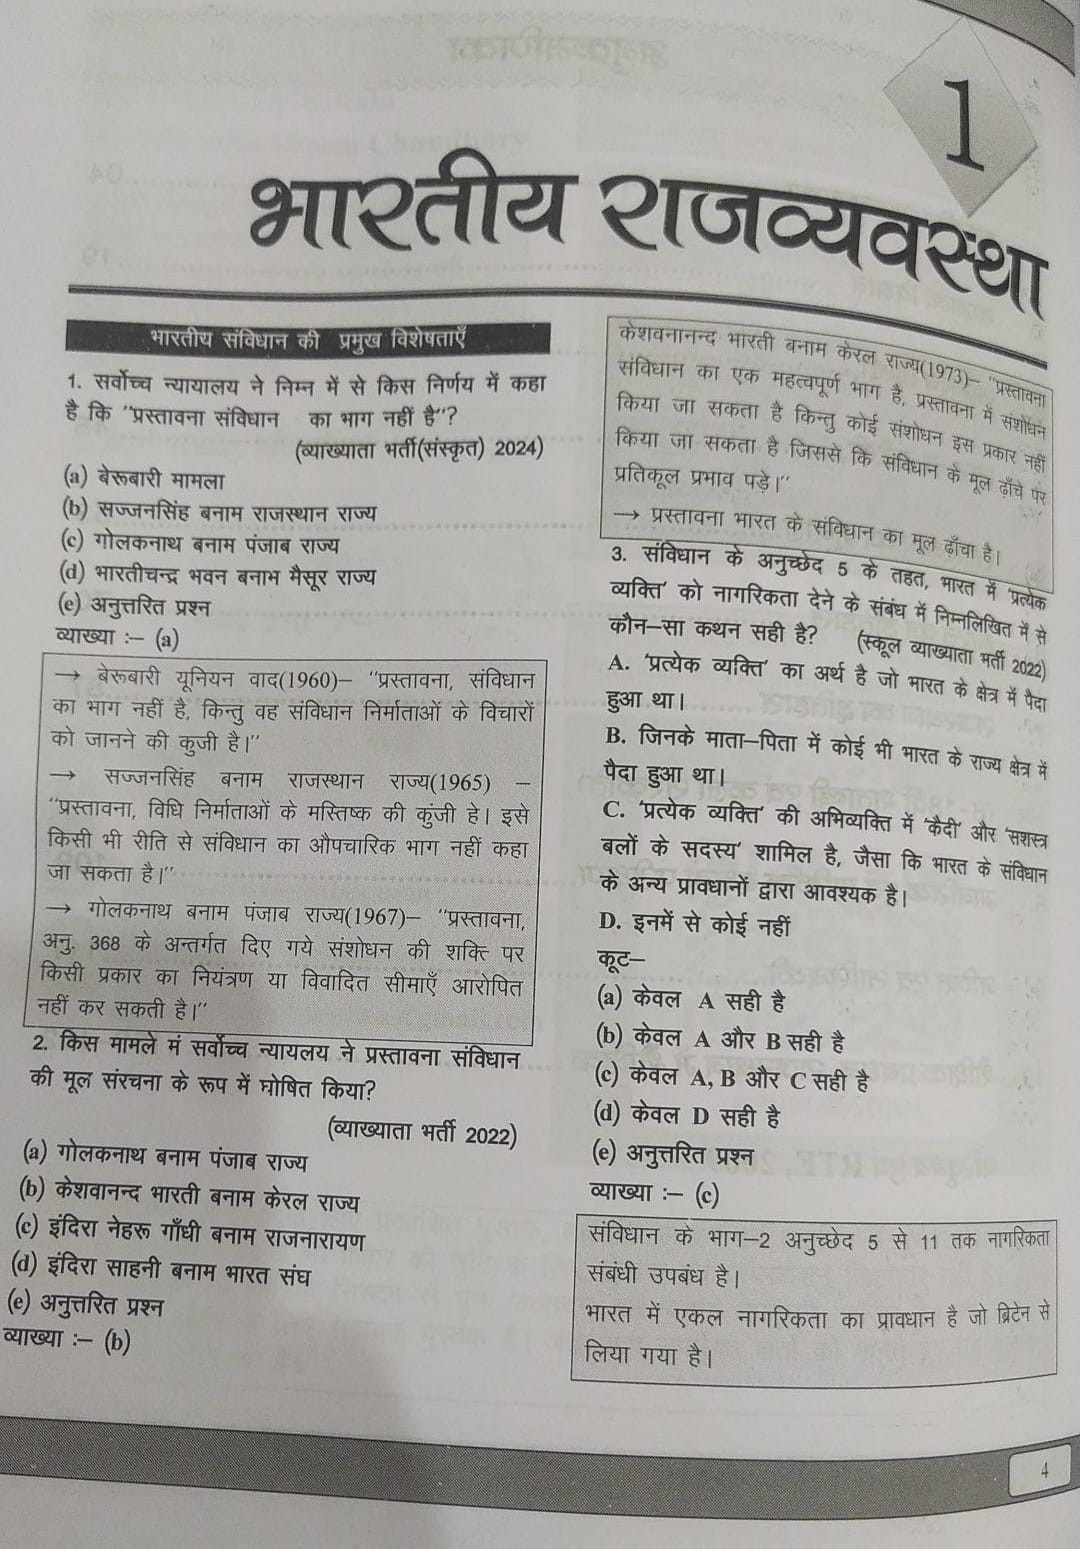 1
भारतीय राजव्यवस्था
भारतीय संविधान की प्रमुख विशेषताएँ
1. सर्वोच्च न्यायालय ने निम्न में से किस निर्णय में कहा
है कि "प्रस्तावना संविधान का भाग नहीं है"?
(व्याख्याता भर्ती(संस्कृत) 2024)
(a) बेरूबारी मामला
(b) सज्जनसिंह बनाम राजस्थान राज्य
(c) गोलकनाथ बनाम पंजाब राज्य
(d) भारतीचन्द्र भवन बनाभ मैसूर राज्य
(e) अनुत्तरित प्रश्न
व्याख्या :– (a)
→ बेरूबारी यूनियन वाद(1960)– "प्रस्तावना, संविधान
का भाग नहीं है, किन्तु वह संविधान निर्माताओं के विचारों
को जानने की कुजी है।"
→ सज्जनसिंह बनाम राजस्थान राज्य(1965) –
"प्रस्तावना, विधि निर्माताओं के मस्तिष्क की कुंजी हे। इसे
किसी भी रीति से संविधान का औपचारिक भाग नहीं कहा
जा सकता है।"
→ गोलकनाथ बनाम पंजाब राज्य(1967)– "प्रस्तावना,
अनु. 368 के अन्तर्गत दिए गये संशोधन की शक्ति पर
किसी प्रकार का नियंत्रण या विवादित सीमाएँ आरोपित
नहीं कर सकती है।"
2. किस मामले मं सर्वोच्च न्यायलय ने प्रस्तावना संविधान
की मूल संरचना के रूप में घोषित किया?
(व्याख्याता भर्ती 2022)
(a) गोलकनाथ बनाम पंजाब राज्य
(b) केशवानन्द भारती बनाम केरल राज्य
(c) इंदिरा नेहरू गाँधी बनाम राजनारायण
(d) इंदिरा साहनी बनाम भारत संघ
(e) अनुत्तरित प्रश्न
व्याख्या :– (b)
केशवनानन्द भारती बनाम केरल राज्य(1973)– "प्रस्तावना
संविधान का एक महत्वपूर्ण भाग है, प्रस्तावना में संशोधन
किया जा सकता है किन्तु कोई संशोधन इस प्रकार नहीं
किया जा सकता है जिससे कि संविधान के मूल ढ़ाँचे पर
प्रतिकूल प्रभाव पड़े।"
→ प्रस्तावना भारत के संविधान का मूल ढ़ाँचा है।
3. संविधान के अनुच्छेद 5 के तहत, भारत में 'प्रत्येक
व्यक्ति' को नागरिकता देने के संबंध में निम्नलिखित में से
कौन–सा कथन सही है? (स्कूल व्याख्याता भर्ती 2022)
A. 'प्रत्येक व्यक्ति' का अर्थ है जो भारत के क्षेत्र में पैदा
हुआ था।
B. जिनके माता–पिता में कोई भी भारत के राज्य क्षेत्र में
पैदा हुआ था।
C. 'प्रत्येक व्यक्ति' की अभिव्यक्ति में 'कैदी' और 'सशस्त्र
बलों के सदस्य' शामिल है, जैसा कि भारत के संविधान
के अन्य प्रावधानों द्वारा आवश्यक है।
D. इनमें से कोई नहीं
कूट–
(a) केवल A सही है
(b) केवल A और B सही है
(c) केवल A, B और C सही है
(d) केवल D सही है
(e) अनुत्तरित प्रश्न
व्याख्या :– (c)
संविधान के भाग–2 अनुच्छेद 5 से 11 तक नागरिकता
संबंधी उपबंध है।
भारत में एकल नागरिकता का प्रावधान है जो ब्रिटेन से
लिया गया है।
4